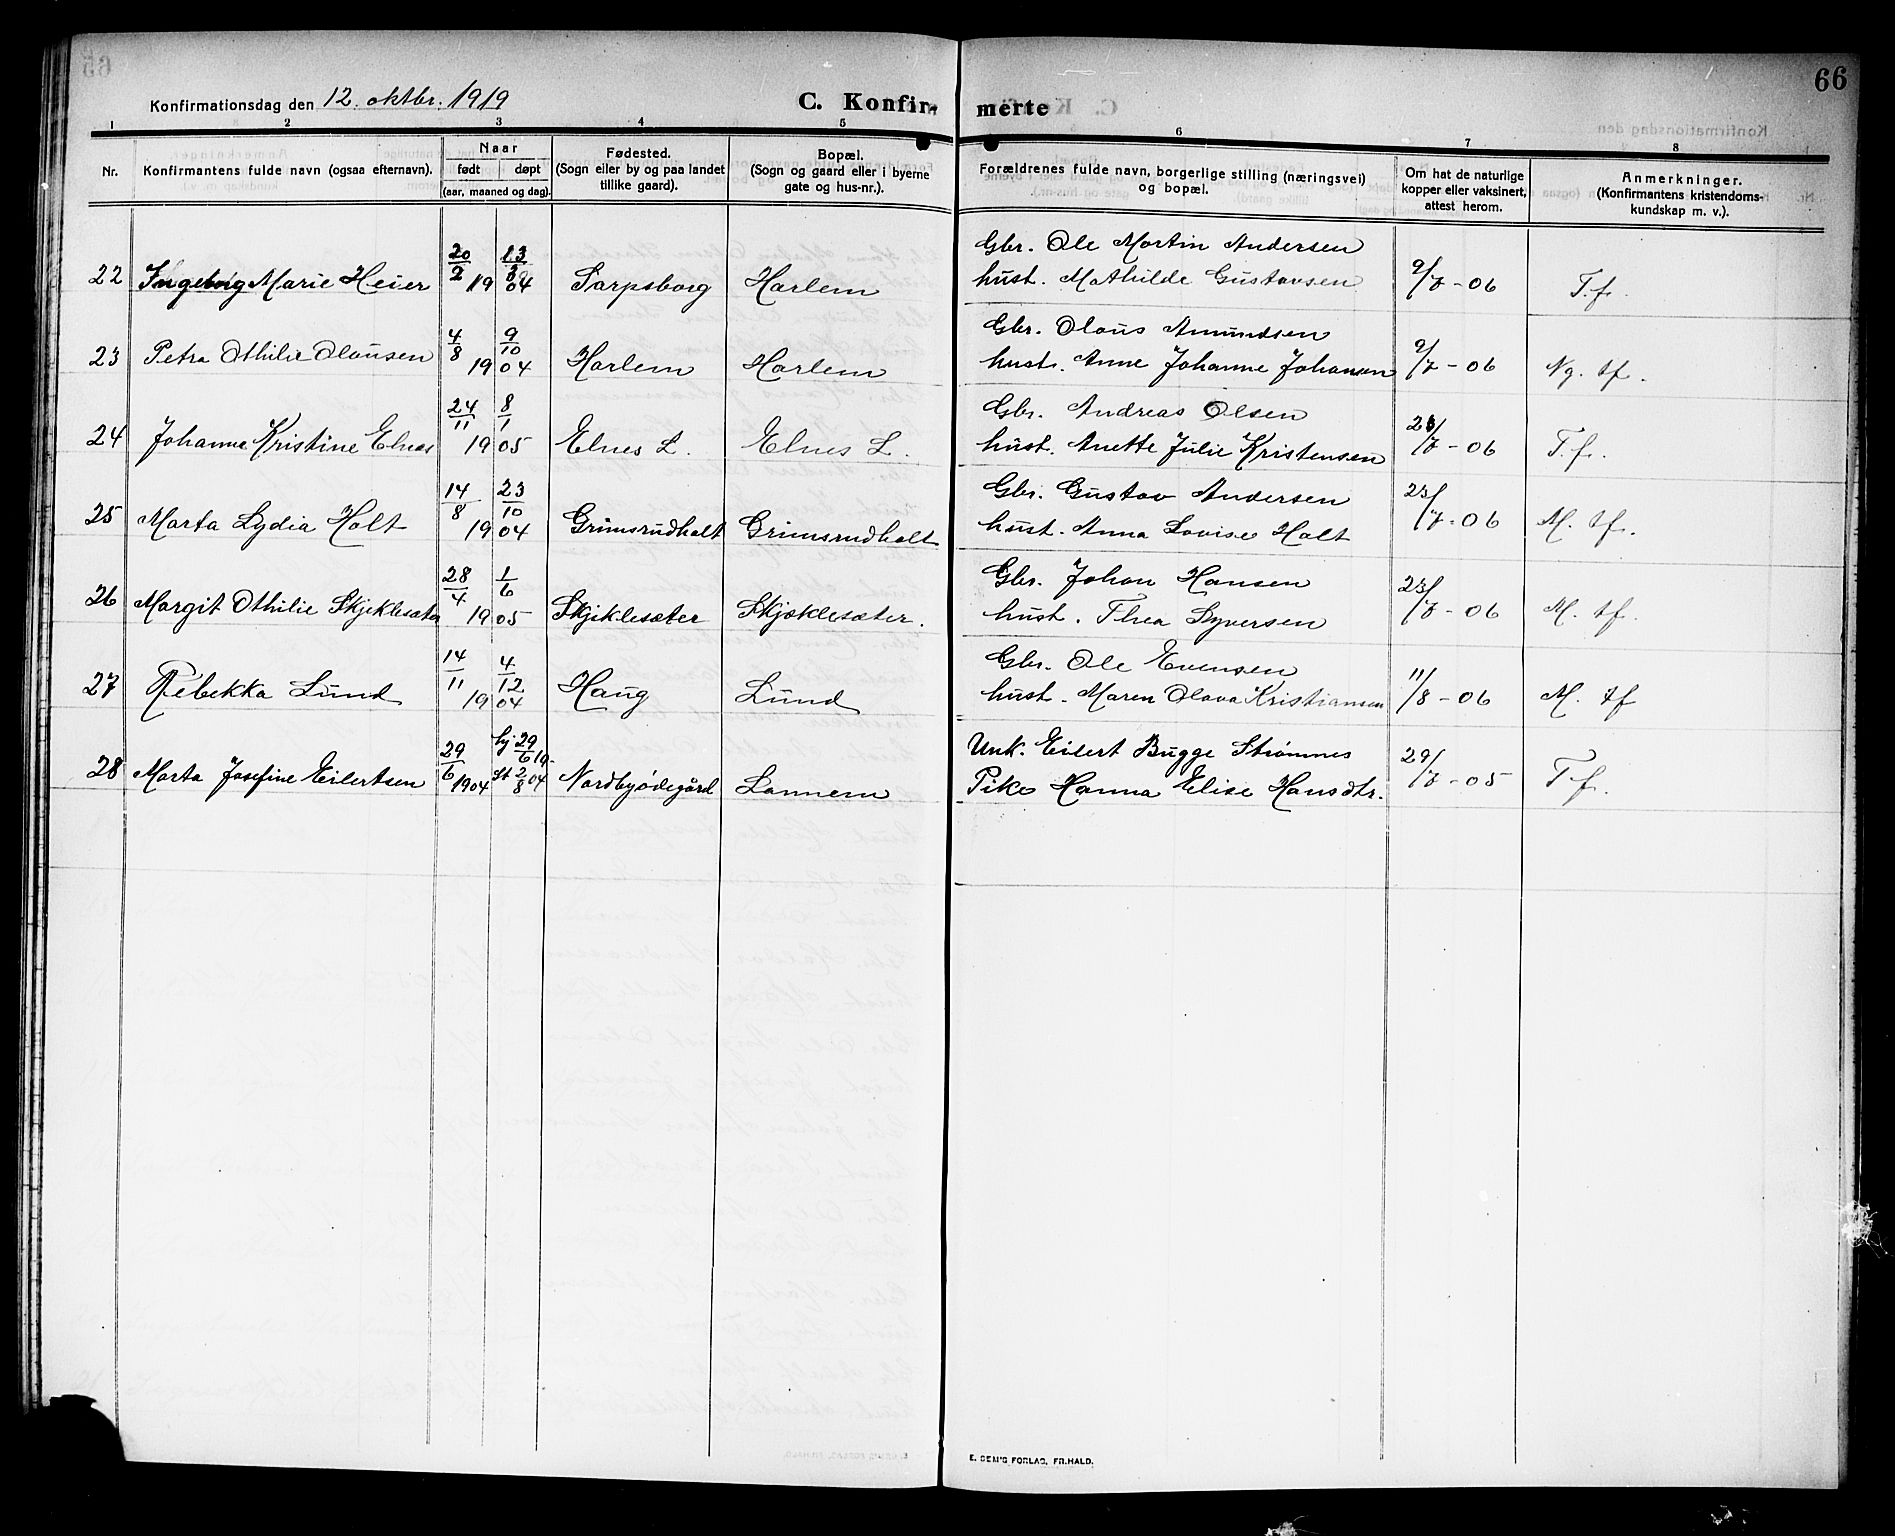 66
Konfirmationsdag den 12. oktbr. 1919
C. Konfir- merte
1 2 3 4 5 6 7 8
Nr.
Konfirmantens fulde navn (ogsaa efternavn).
Naar
født døpt
(aar, maaned og dag).
Fødested.
(Sogn eller by og paa landet
tillike gaard).
Bopæl.
(Sogn og gaard eller i byerne
gate og hus-nr.).
Forældrenes fulde navn, borgerlige stilling (næringsvei)
og bopæl.
Om hat de naturlige
kopper eller vaksinert,
attest herom.
Anmerkninger.
(Konfirmantens kristendoms-
kundskap m. v.).
Gbr. Ole Martin Andersen
22 Ingeborg Marie Heier 20/2 19 13/3 04 Sarpsborg Harlem hust. Mathilde Gustavsen 9/7 - 06 T.f.
Gbr. Olaus Amundsen
23 Petra Othilie Olausen 4/8 19 9/10 04 Harlem Harlem hust. Anne Johanne Johansen 9/7 - 06 Ng. tf.
Gbr. Andreas Olsen
24 Johanne Kristine Elnes 24/11 19 8/1 05 Elnes L. Elnes L. hust. Anette Julie Kristensen 23/7 - 06 T.f.
Gbr. Gustav Andersen
25 Marta Lydia Holt 14/8 19 23/10 04 Grimsrudholt Grimsrudholt hust. Anna Lovise Holt 23/7 - 06 M. tf.
Gbr. Johan Hansen
26 Margit Othilie Skjeklesæter 28/4 19 1/6 05 Skjiklesæter Skjeklesæter. hust. Thea Syversen 23/7 - 06 M. tf.
Gbr. Ole Evensen
27 Rebekka Lund 14/11 19 4/12 04 Haug Lund hust. Maren Olava Kristiansen 11/8 - 06 M. tf
Unk. Eilert Bugge Strømnes
28 Marta Josefine Eilertsen 29/6 1904 hj 29/6 19- st 2/8 04 Nordbyødegård Lannem Pike Hanna Elise Hansdtr. 29/7 - 05 T f.
E. SEM'S FORLAG, FR.HALD.